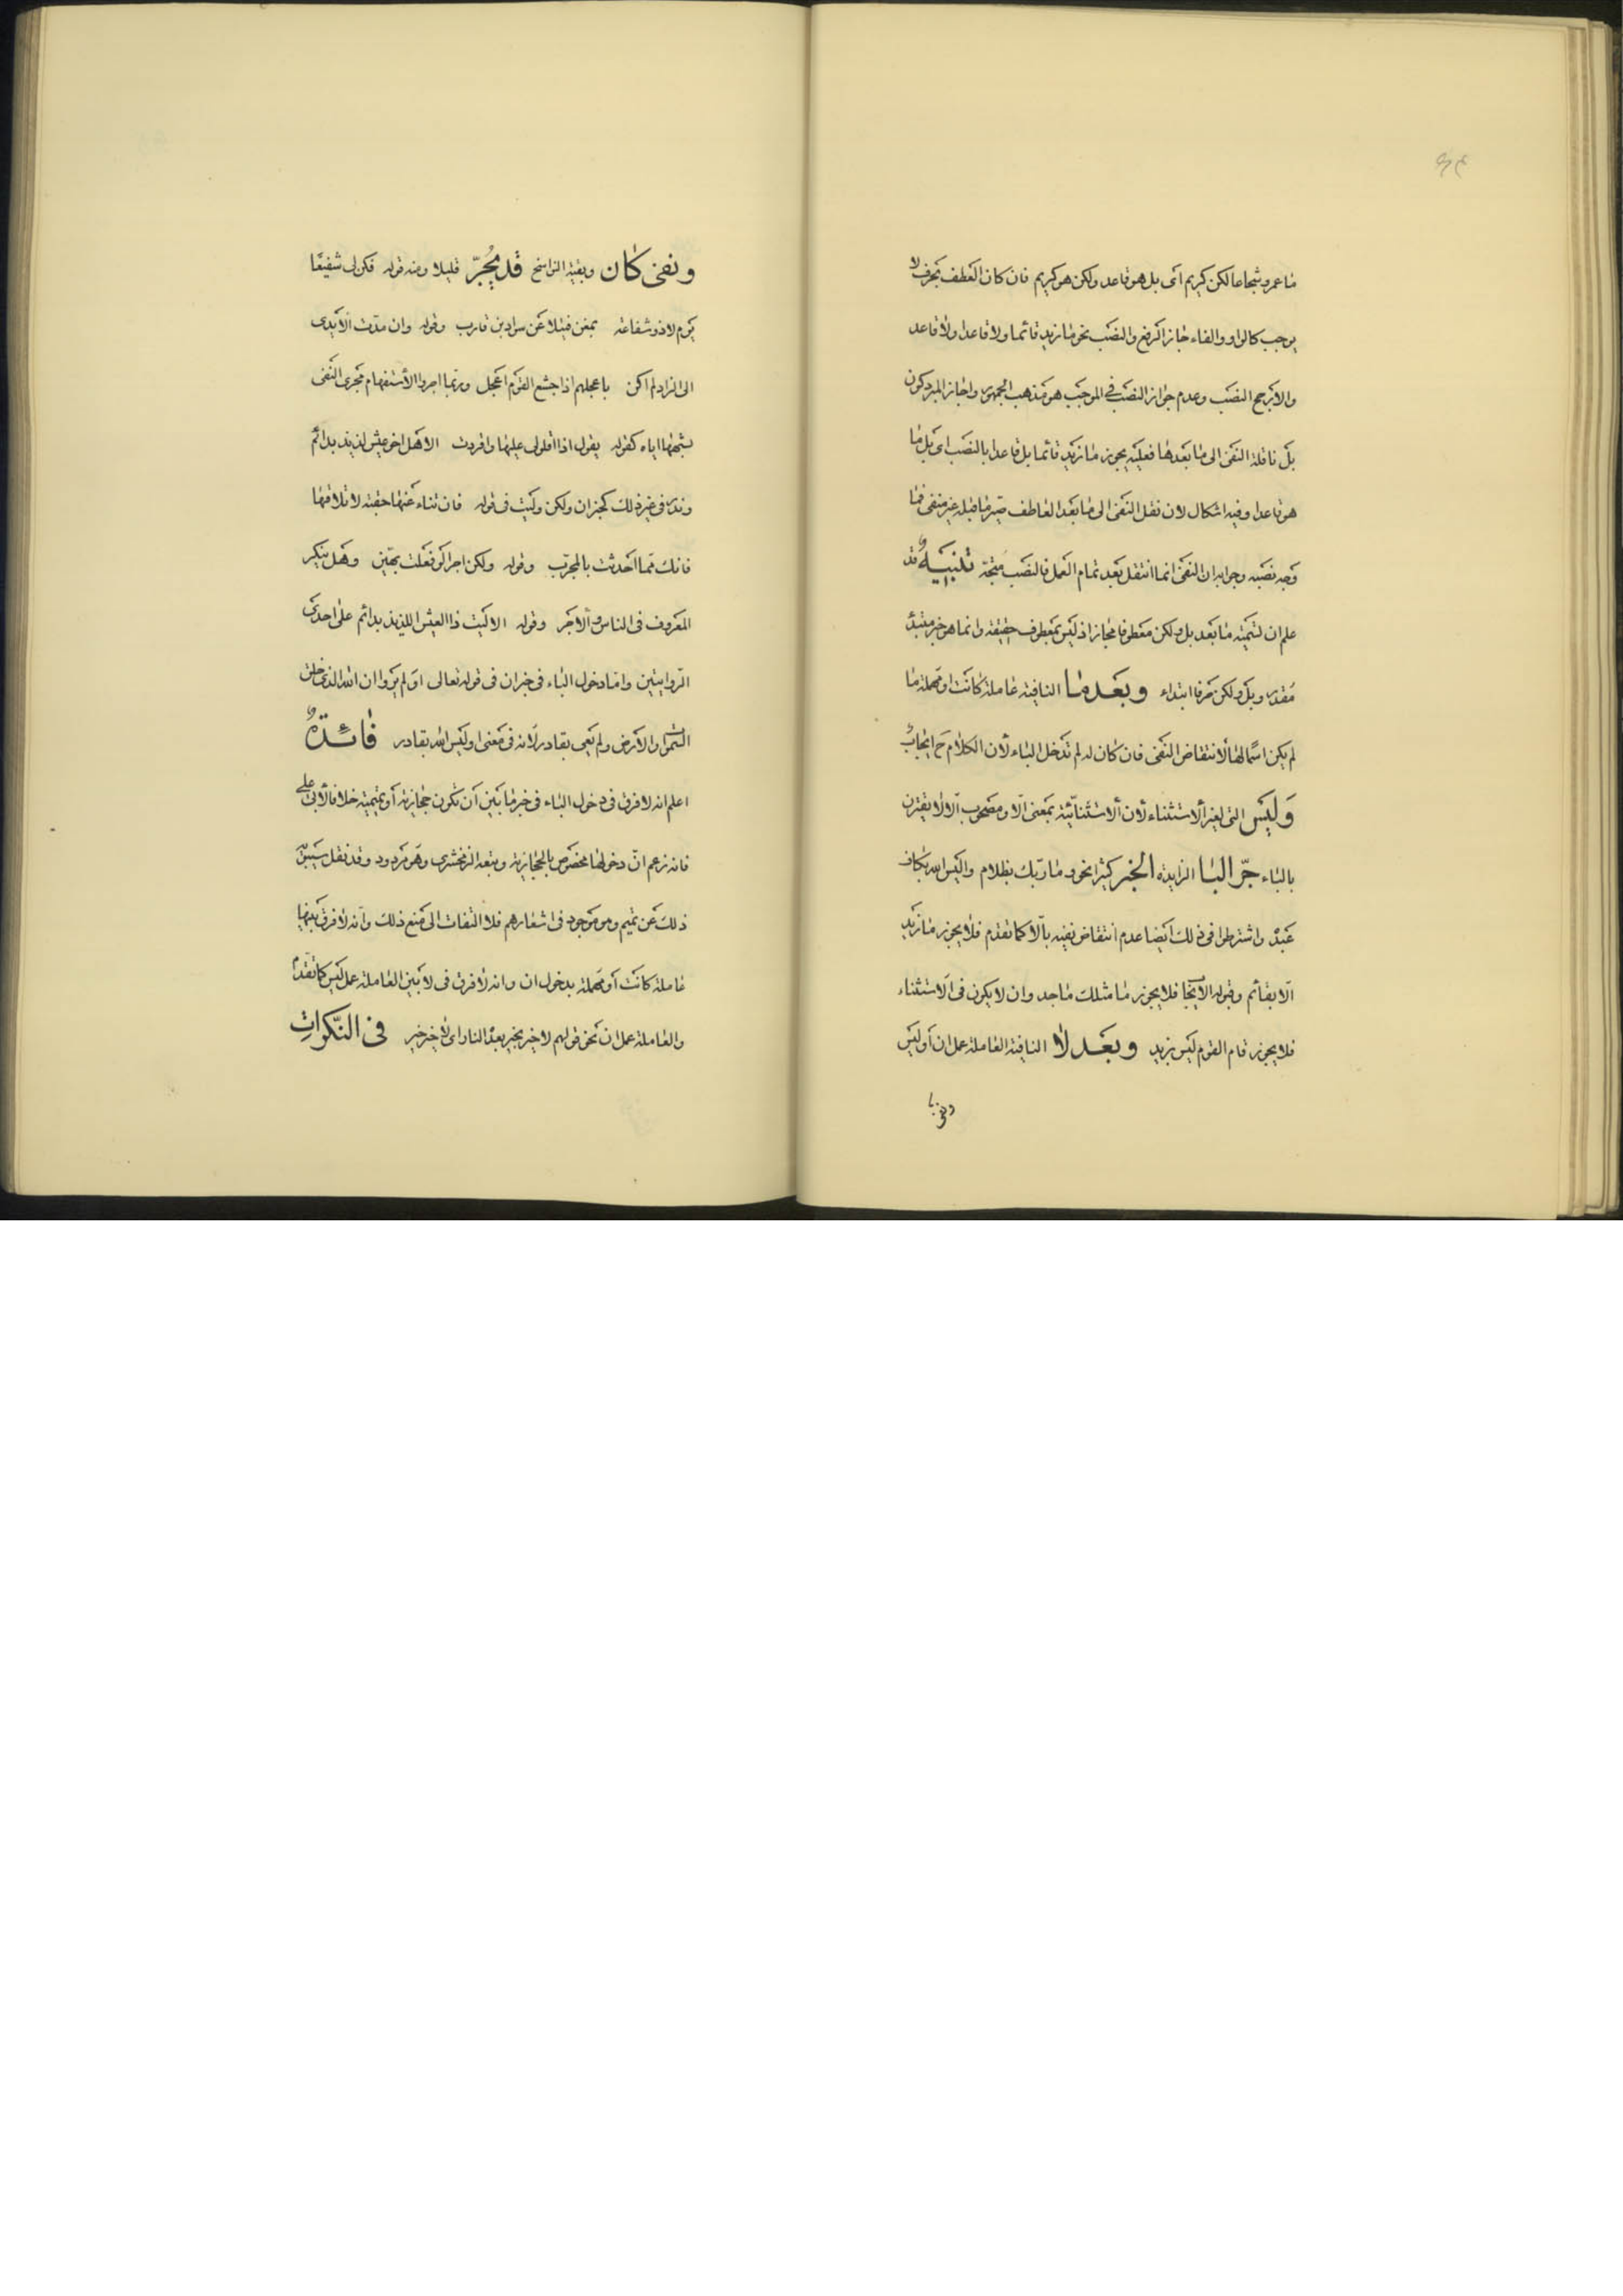 ما عمرو شجاعا لكن كريم اى بل هو قاعد ولكن هو كريم فان كان العطف بحرف لا
يوجب كالواو والفاء جاز الرفع والنصب نحو ما زيد قائما ولا قاعدا ولا قاعد
والارجح النصب وعدم جواز النصب في الموجب هو مذهب الجمهور واجاز المبرد كون
بل ناقلة النفى الى ما بعدها فعليه يجوز ما زيد قائما بل قاعدا بالنصب اى بل ما
هو قاعدا وفيه اشكال لان نقل النفى الى ما بعد العاطف صير ما قبله غير منفى فما
وجه نصبه وجوابه ان النفى انما انتقل بعد تمام العمل فالنصب متجه تنبيه قد
علم ان تسمية ما بعد بل ولكن معطوفا مجاز اذ ليس بمعطوف حقيقة وانما هو خبر مبتدأ
مقدر وبل ولكن حرفا ابتداء وبعد ما النافية عاملة كانت او مهملة ما
لم يكن اسما لها لا نتقاض النفى فان كان له لم تدخل الباء لان الكلام ح ايجاب
وليس التى لغير الاستثناء لان الاستثنائية بمعنى الا ومصحوب الا لا يقترن
بالباء جر البا الزايدة الخبر كثيرا نحو وما ربك بظلام واليس الله بكاف
عبده واشترطوا فى ذلك ايضا عدم انتقاض نفيه بالا كما تقدم فلا يجوز ما زيد
الا بقائم وقبوله الايجاب فلا يجوز ما مثلك باحد وان لا يكون فى الاستثناء
فلا يجوز قام القوم ليس بزيد وبعد لا النافية العاملة عمل ان او ليس
ونفى
ونفى كان وبقية النواسخ قد يجر قليلا ومنه قوله فكن لى شفيعا
يوم لا ذو شفاعة بمغن فتيلا عن سواد بن قارب وقوله وان مدت الايدى
الى الزاد لم اكن باعجلهم اذا جشع القوم اعجل وربما اجروا الاستفهام مجرى النفى
لشبهها اياه كقوله يقول اذا اقلولى عليها واقردت الا هل اخو عيش لذيذ بدائم
وندر فى غير ذلك كخبر ان ولكن وليت فى قوله فان تناء عنها حقبة لا تلاقها
فانك مما احدثت بالمجرب وقوله ولكن اجرا لو فعلت بهين وهل ينكر
المعروف فى الناس والاجر وقوله الا ليت ذا العيش اللذيذ بدائم على احدى
الروايتين واما دخول الباء فى خبر ان فى قوله تعالى اولم يروا ان الله الذى خلق
السموات والارض ولم يعى بقادر لانه فى معنى اوليس الله بقادر فائدة
اعلم انه لا فرق فى دخول الباء فى خبر ما بين ان تكون حجازية او تميمية خلافا لابى على
فانه زعم ان دخولها مخصوص بالحجازية وتبعه الزمخشرى وهو مردود وقد نقل سيبويه
ذلك عن تميم وهو موجود فى اشعارهم فلا التفات الى منع ذلك وانه لا فرق بينها
عاملة كانت او مهملة بدخول ان وانه لا فرق فى لا بين العاملة عمل ليس كما تقدم
والعاملة عمل ان نحو قولهم لا خير بخير بعده النار اى لا خير خير فى النكرات